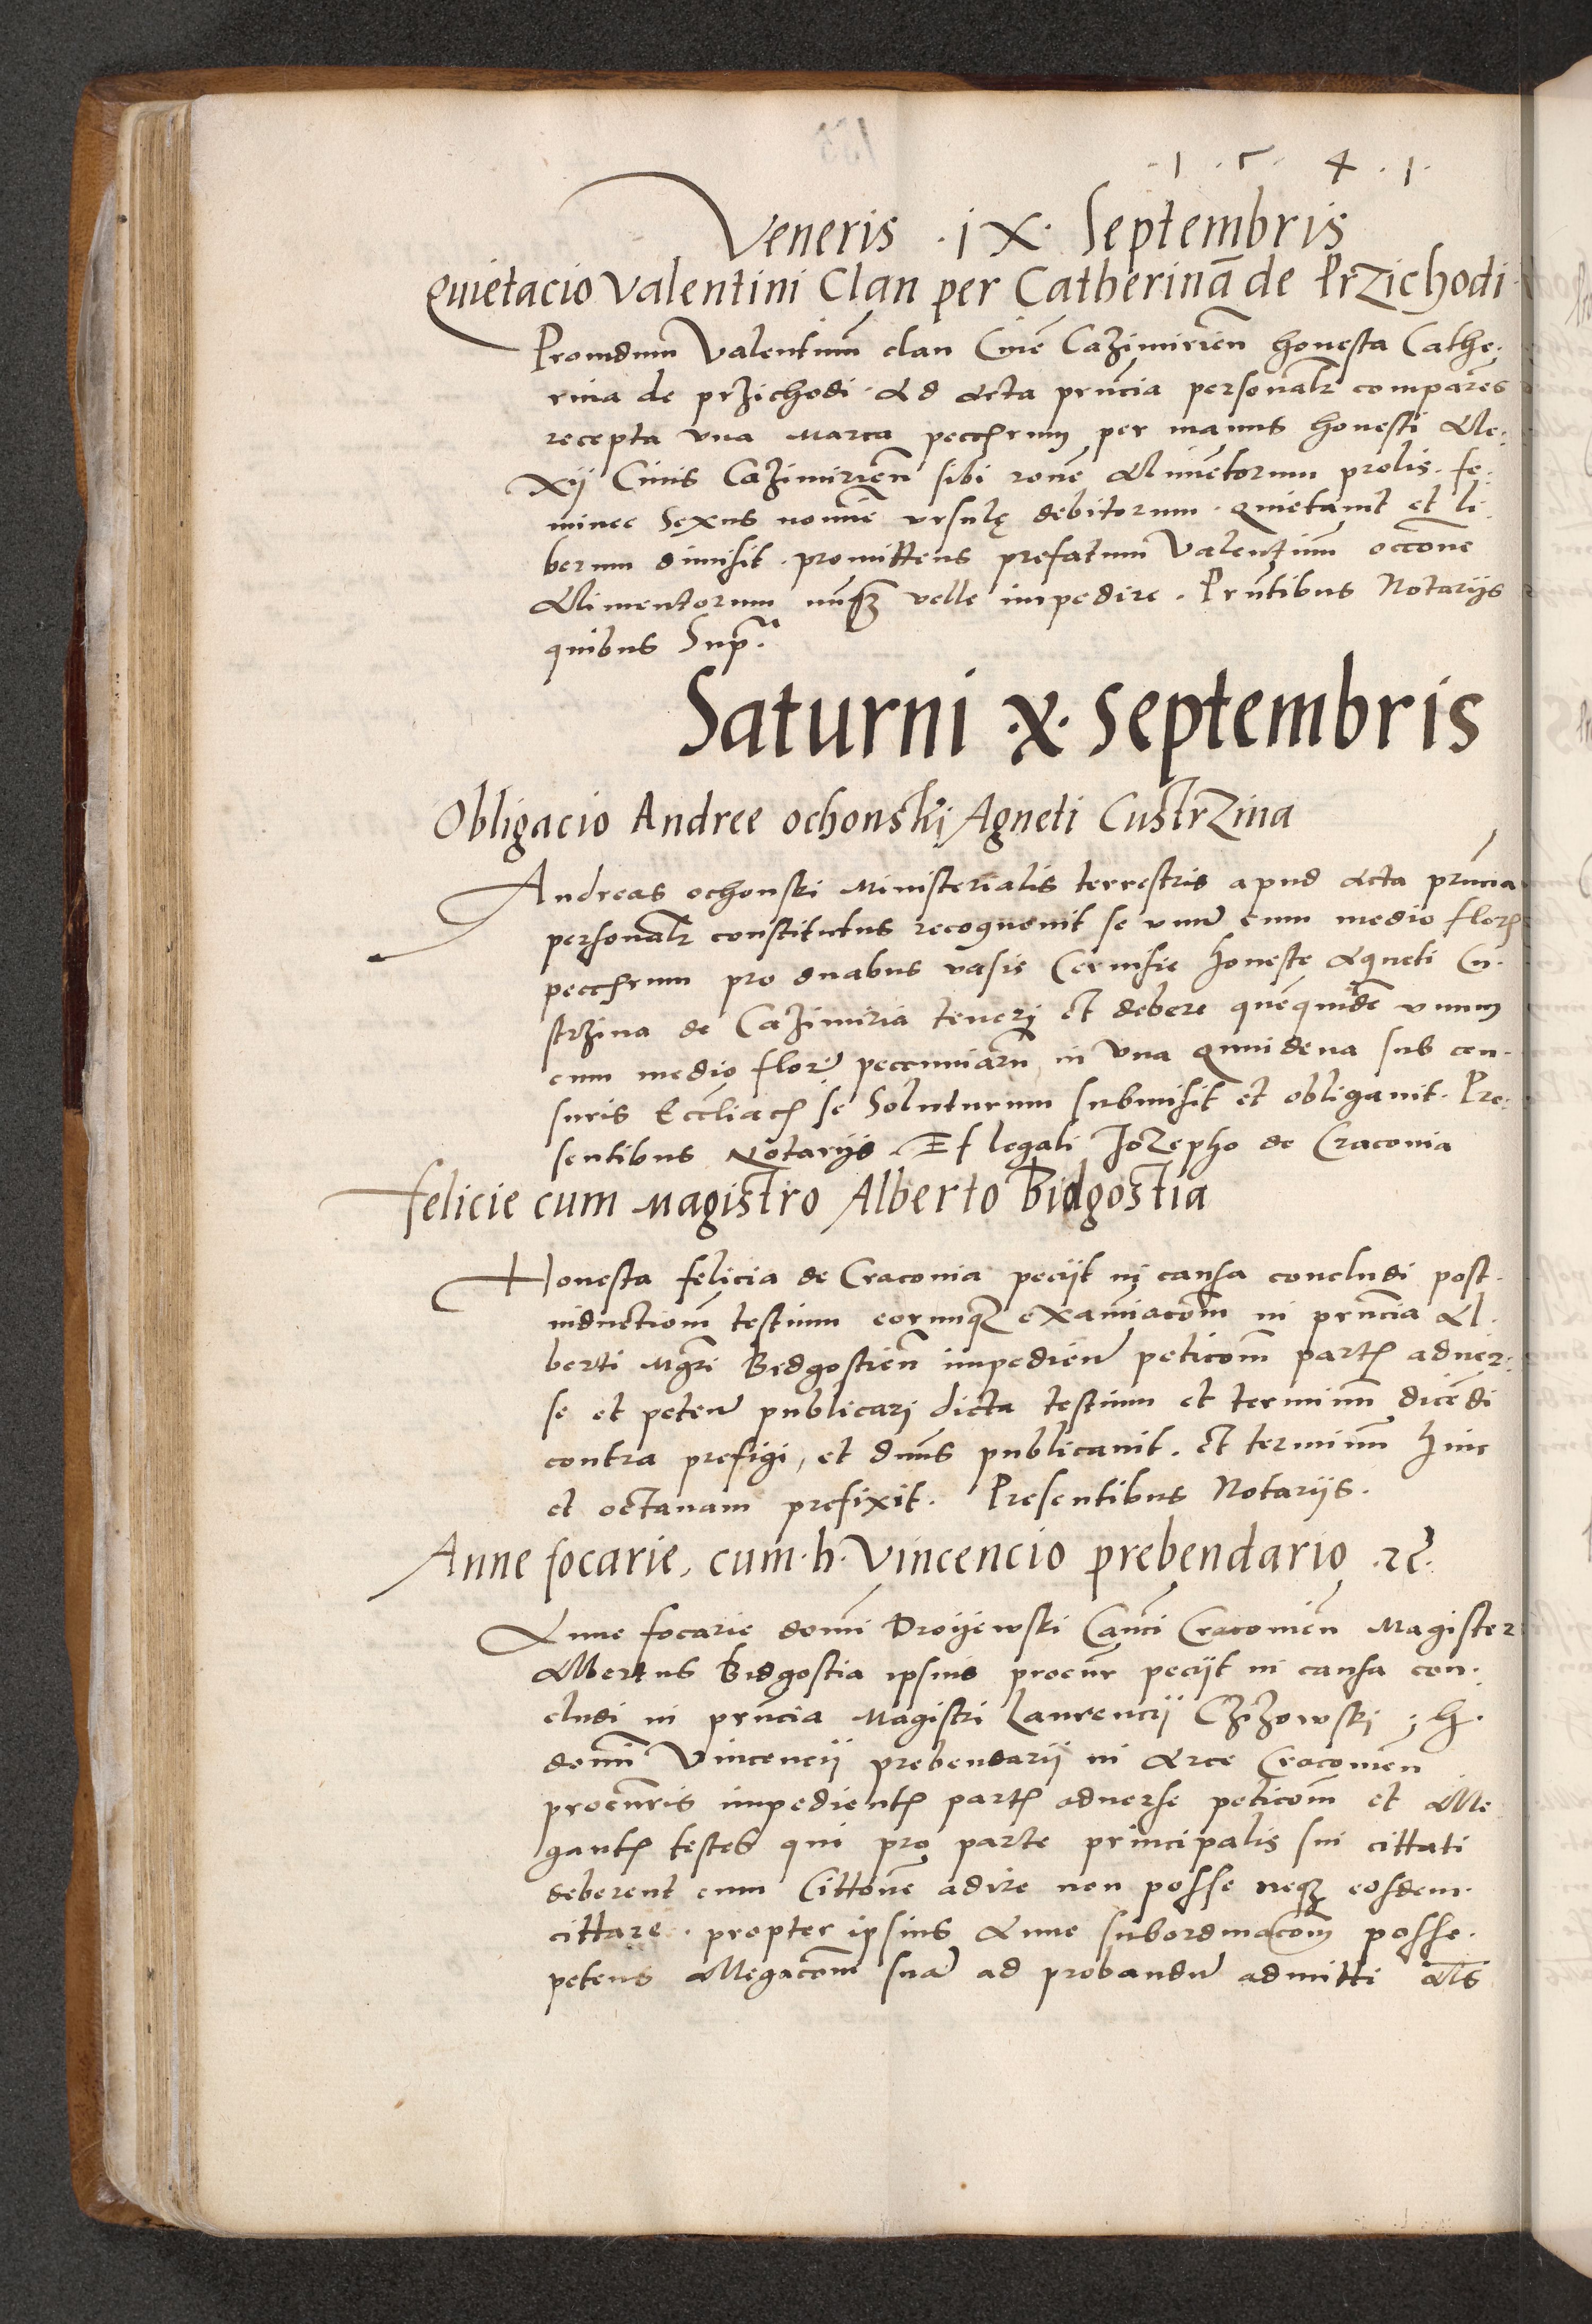 · 1 · 5 · 4 · 1 ·
Veneris · i X · Septembris
Quietacio Valentini Clan per Catherinā de Przichodi ·
Prouidum Valentinum clan Ciuē Cazimiriēn honesta Cathe:
rina de przichodi · Ad Acta pn̄cia personalr̄ comparēs
recepta vna Marca peccherum per manus honesti Ale:
xij Ciuis Cazimiriēn sibi rōne Alimētorum prolis · fe:
minee Sexus nomīe vrsulę debitorum · quietauit et li:
berum dimisit · promittens prefatum Valentinum occōne
Alimentorum nunq̄ȝ velle impedire · Prn̄tibus Notarijs
quibus Supra
Saturni · x · Septembris
Obligacio Andree ochonski Agneti Custrzina
Andreas ochonski Ministerialis terrestris apud Acta prn̄cia
personalr̄ constitutus recognouit se vnū cum medio floreň
peccherum pro duabus vasis Ceruisie honeste Agneti Cu:
strzina de Cazimiria teneri et debere quēquidē vnum
cum medio florē peccuniarū in vna quindena sub cen:
suris Eccl̄iacis se Soluturum submisit et obligauit · Pre:
sentibus Notarijs · Et legali Jozepho de Cracouia
Felicie cum Magistro Alberto Bidgostia
Honesta felicia de Cracouia peciit in causa concludi post ·
inductiom̄ testium eorumqȝ examīacōm in prn̄cia Al:
berti Mgr̄i Bidgostien̄ impedien̄ peticōm partis aduer:
se et peteň publicari dicta testium et terminum dicēdi
contra prefigi, et dn̄us publicauit · et terminum hinc
et octauam prefixit · Presentibus Notarijs ·
Anne focarie, cum · h · Vincencio prebendario · ꝛc̄ ·
Anne focarie domī Droijewski Cann̄ci Cracouien̄ Magister
Albertus Bidgostia ipsius procur̄ peciit in causa con:
cludi in prn̄cia Magistri Laurencij Czizowski ; h ·
domī Vincencij prebendarij in Arce Cracouien̄
procuratoris impedientis partis aduerse peticōm et Alle
gantis testes qui pro parte principalis sui cittati
deberent cum Cittōne adire non posse neqȝ eosdem ·
cittare · propter ipsius Anne subordinacōm posse ·
petens Allegacōm suā ad probandū admitti Al̄s